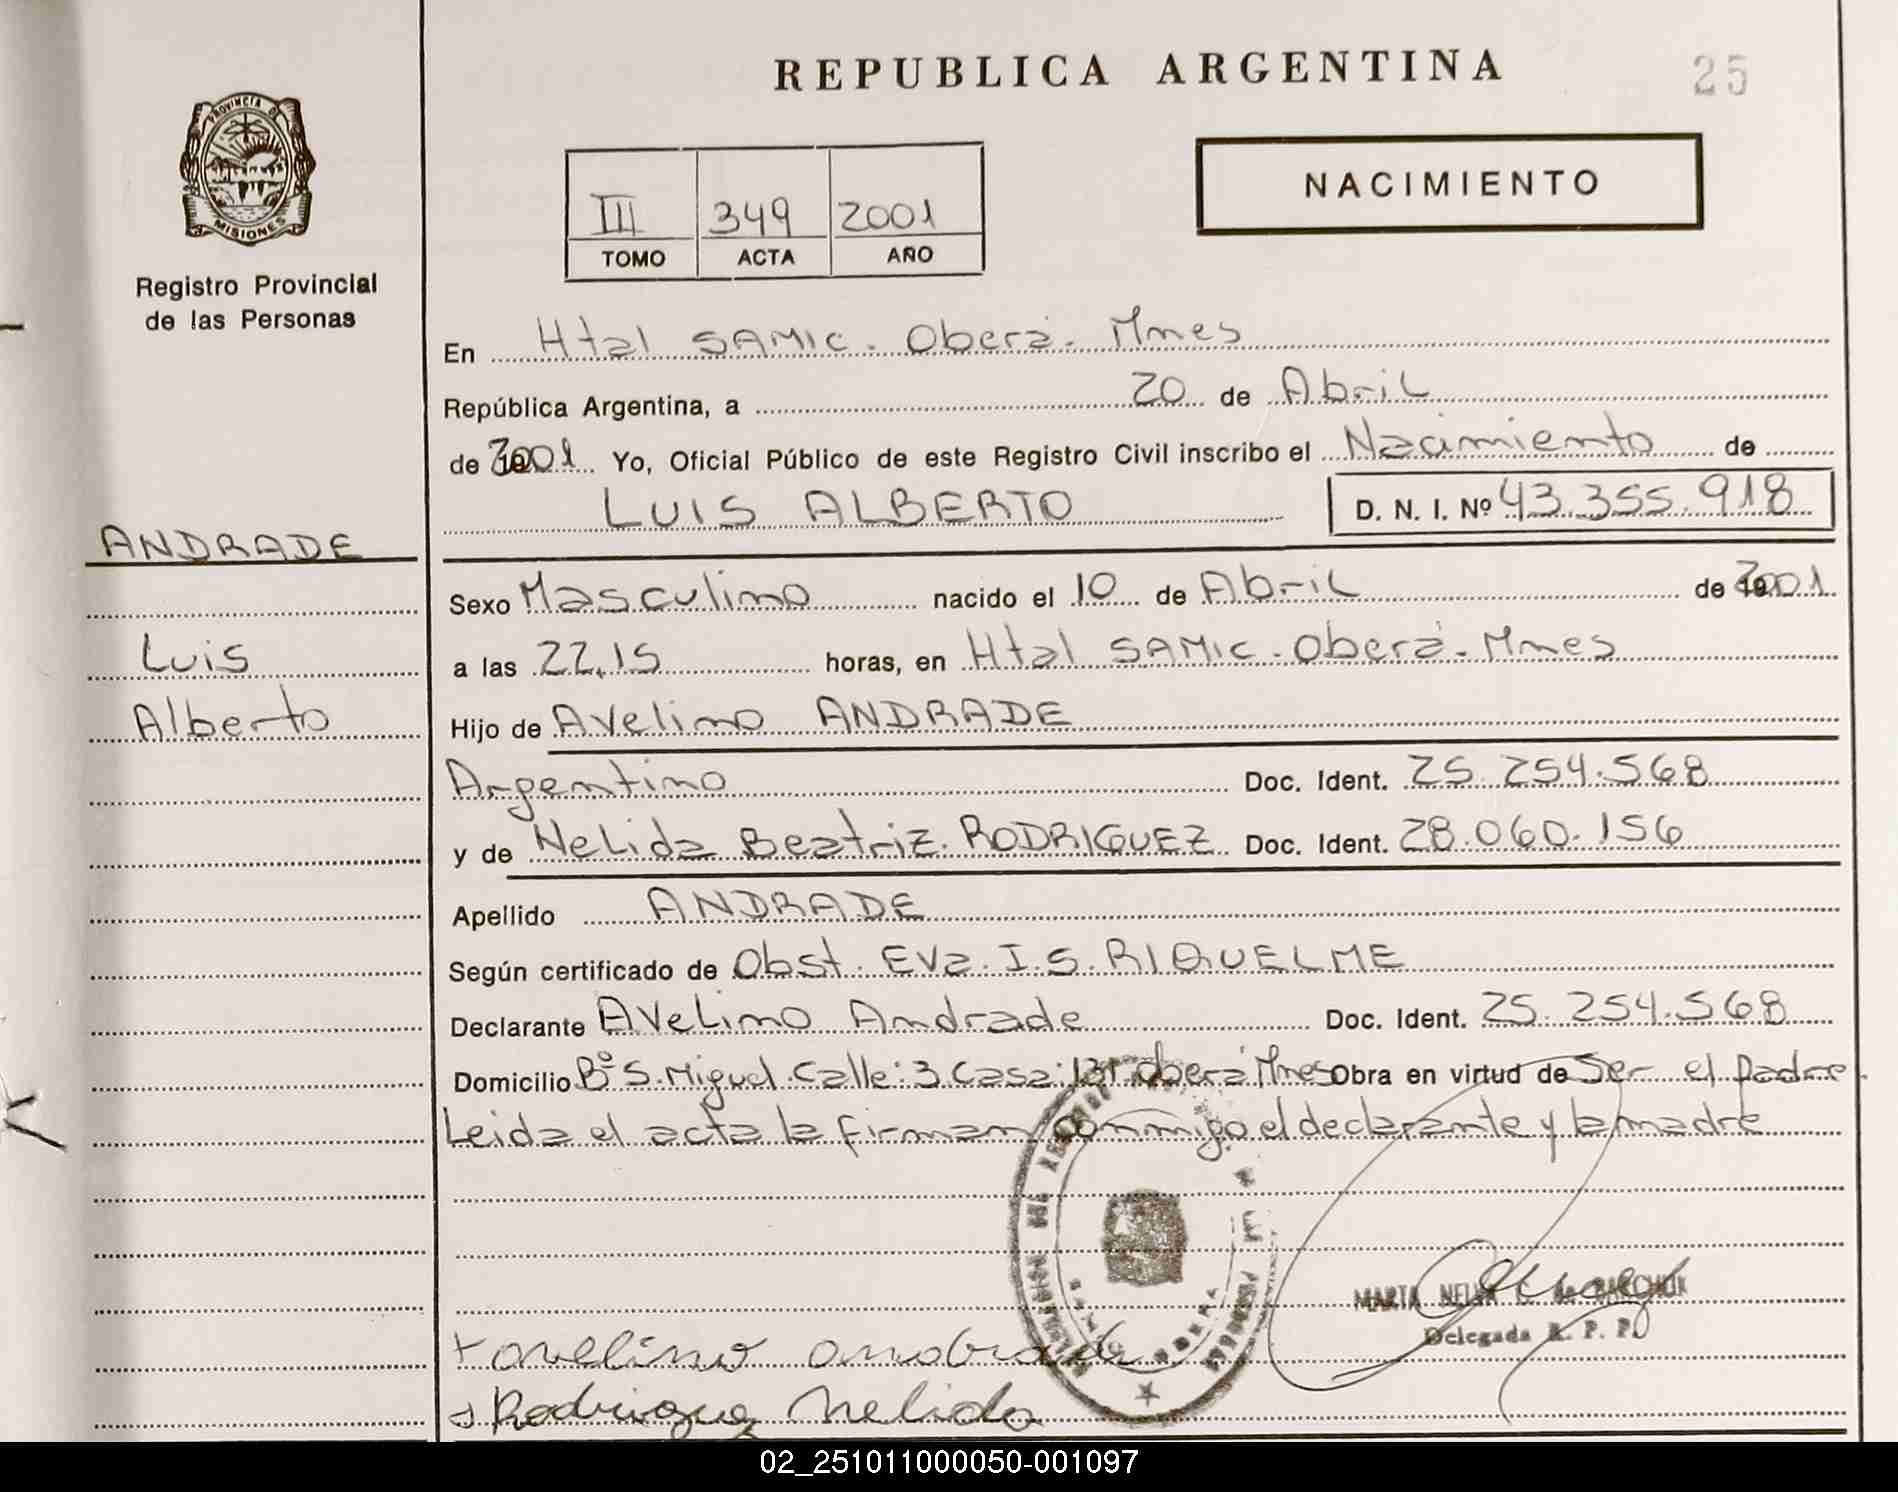 REPUBLICA ARGENTINA
25
PROVINCIA DE
MISIONES
Registro Provincial
de las Personas
III 349 2001
TOMO ACTA AÑO
NACIMIENTO
En Htal SAMIC. Oberá. Mnes
República Argentina, a 20 de Abril
de 2001 Yo, Oficial Público de este Registro Civil inscribo el Nacimiento de
LUIS ALBERTO D. N. I. Nº 43.355.918
ANDRADE
Luis
Alberto
Sexo Masculino nacido el 10 de Abril de 2001
a las 22,15 horas, en Htal SAMIC. Oberá. Mnes
Hijo de Avelino ANDRADE
Argentino Doc. Ident. 25.254.568
y de Nelida Beatriz. RODRIGUEZ Doc. Ident. 28.060.156
Apellido ANDRADE
Según certificado de Obst. Eva. I.S. RIQUELME
Declarante Avelino Andrade Doc. Ident. 25.254.568
Domicilio Bº S. Miguel Calle: 3 Casa: 131 Oberá Mnes Obra en virtud de Ser el padre
Leida el acta la firman conmigo el declarante y la madre
MARTA C. de
Delegada R. P. P.
avelino andrade
Rodriguez Nelida
02_251011000050-001097